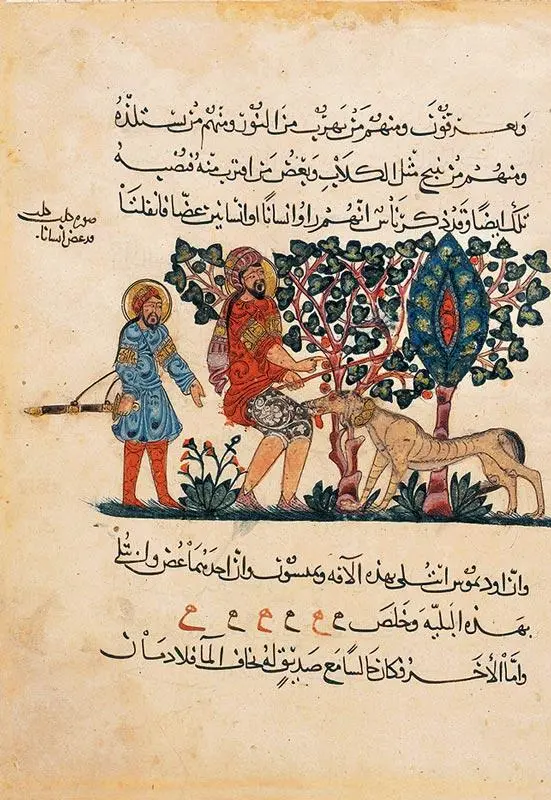 ويعرقون ومنهم من يهرب من النور ومنهم من يستلذه
ومنهم من ينبح مثل الكلاب وبعض من اقترب منه فتصيبه
تلك ايضا وقد ذكر ناس انهم راوا انسانا او انسانين عضا فانفلتا
صورة كلب كلب
قد عض انسانا
وان اوديموس ابتلى بهذه الافه وثميسون وان احدهما عض وابتلى
بهذه البليه وخلص ه ه ه ه ه ه
واما الاخر فكان جالسا مع صديق له يخاف الما فلاد مان